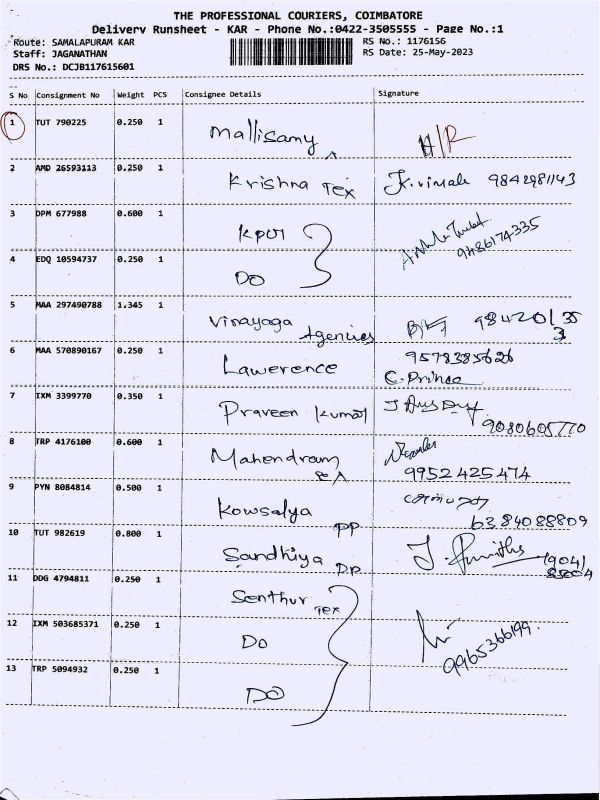 THE PROFESSIONAL COURIERS, COIMBATORE
Delivery Runsheet - KAR - Phone No.:0422-3505555 - Page No.:1
Route: SAMALAPURAM KAR RS No.: 1176156
Staff: JAGANATHAN RS Date: 25-May-2023
DRS No.: DCJB117615601
S No Consignment No Weight PCS Consignee Details Signature
1 TUT 790225 0.250 1 Mallisamy H/R
2 AMD 26593113 0.250 1 Krishna Tex K.vimala 9842981143
3 DPM 677988 0.600 1 9486174335
4 EDQ 10594737 0.250 1 DO
5 MAA 297490788 1.345 1 Vinayaga Agencies
6 MAA 570890167 0.250 1 Lawerence 9578385626
C. Prince
7 IXM 3399770 0.350 1 Praveen Kumar
9080605770
8 TRP 4176100 0.600 1 Mahendran
9952425474
9 PYN 8084814 0.500 1 Kowsalya
PP 6384088809
10 TUT 982619 0.800 1 Sandhiya PP
11 DDG 4794811 0.250 1 Senthur Tex
12 IXM 503685371 0.250 1 Do 9965366199.
13 TRP 5094932 0.250 1 DO